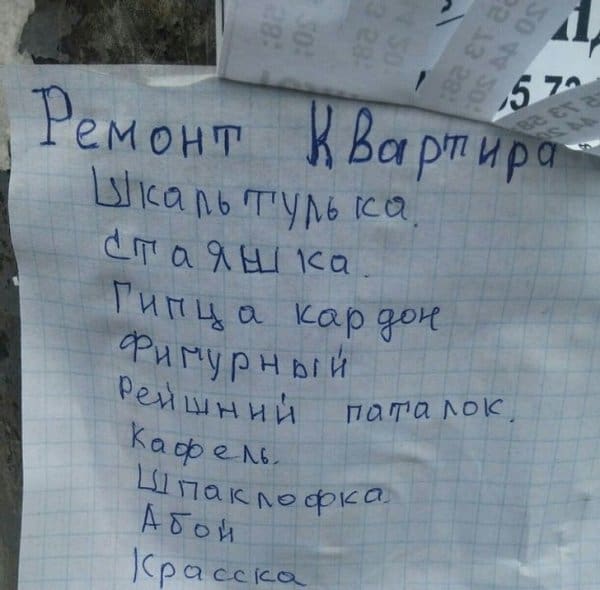 Ремонт Квартира
Шкальтулька.
стаяшка.
Гипца кардон
Фигурный
Рейшний паталок.
Кафель.
Шпаклофка.
Абой
Красска